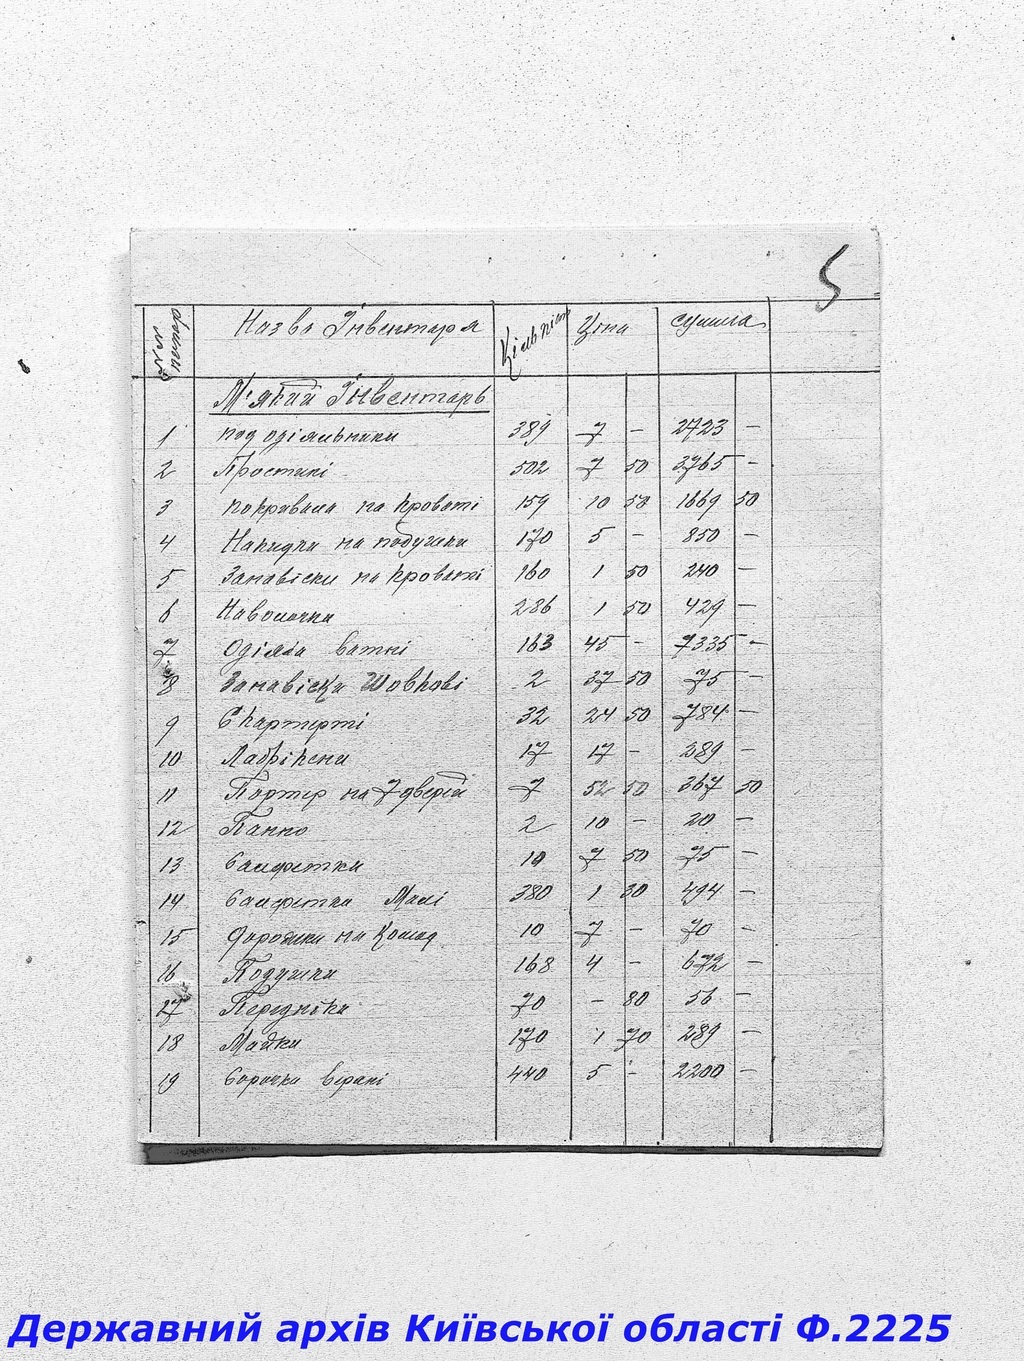 5
№№ поряд Назва Інвентаря Кількіст Ціна сумма
М'який Інвентарь
1 подідіяльники 389 7 - 2723 -
2 Простині 502 7 50 3765 -
3 покривала на кроваті 159 10 50 1669 50
4 Накидки на подушки 170 5 - 850 -
5 Занавіски на кроваті 160 1 50 240 -
6 Наволочки 286 1 50 429 -
7 Одіяла ватні 163 45 - 7335 -
8 Занавіски Шовкові 2 37 50 75 -
9 Скартерті 32 24 50 784 -
10 Ламбрікени 17 17 - 289 -
11 Портєр на 7 дверей 7 52 50 367 50
12 Панно 2 10 - 20 -
13 Салфетки 10 7 50 75 -
14 Салфетки Малі 380 1 30 494 -
15 Дорожки на Комод 10 7 - 70 -
16 Подушки 168 4 - 672 -
17 Передніки 70 - 80 56 -
18 Майки 170 1 70 289 -
19 Сорочки верхні 440 5 - 2200 -
Державний архів Київської області Ф.2225